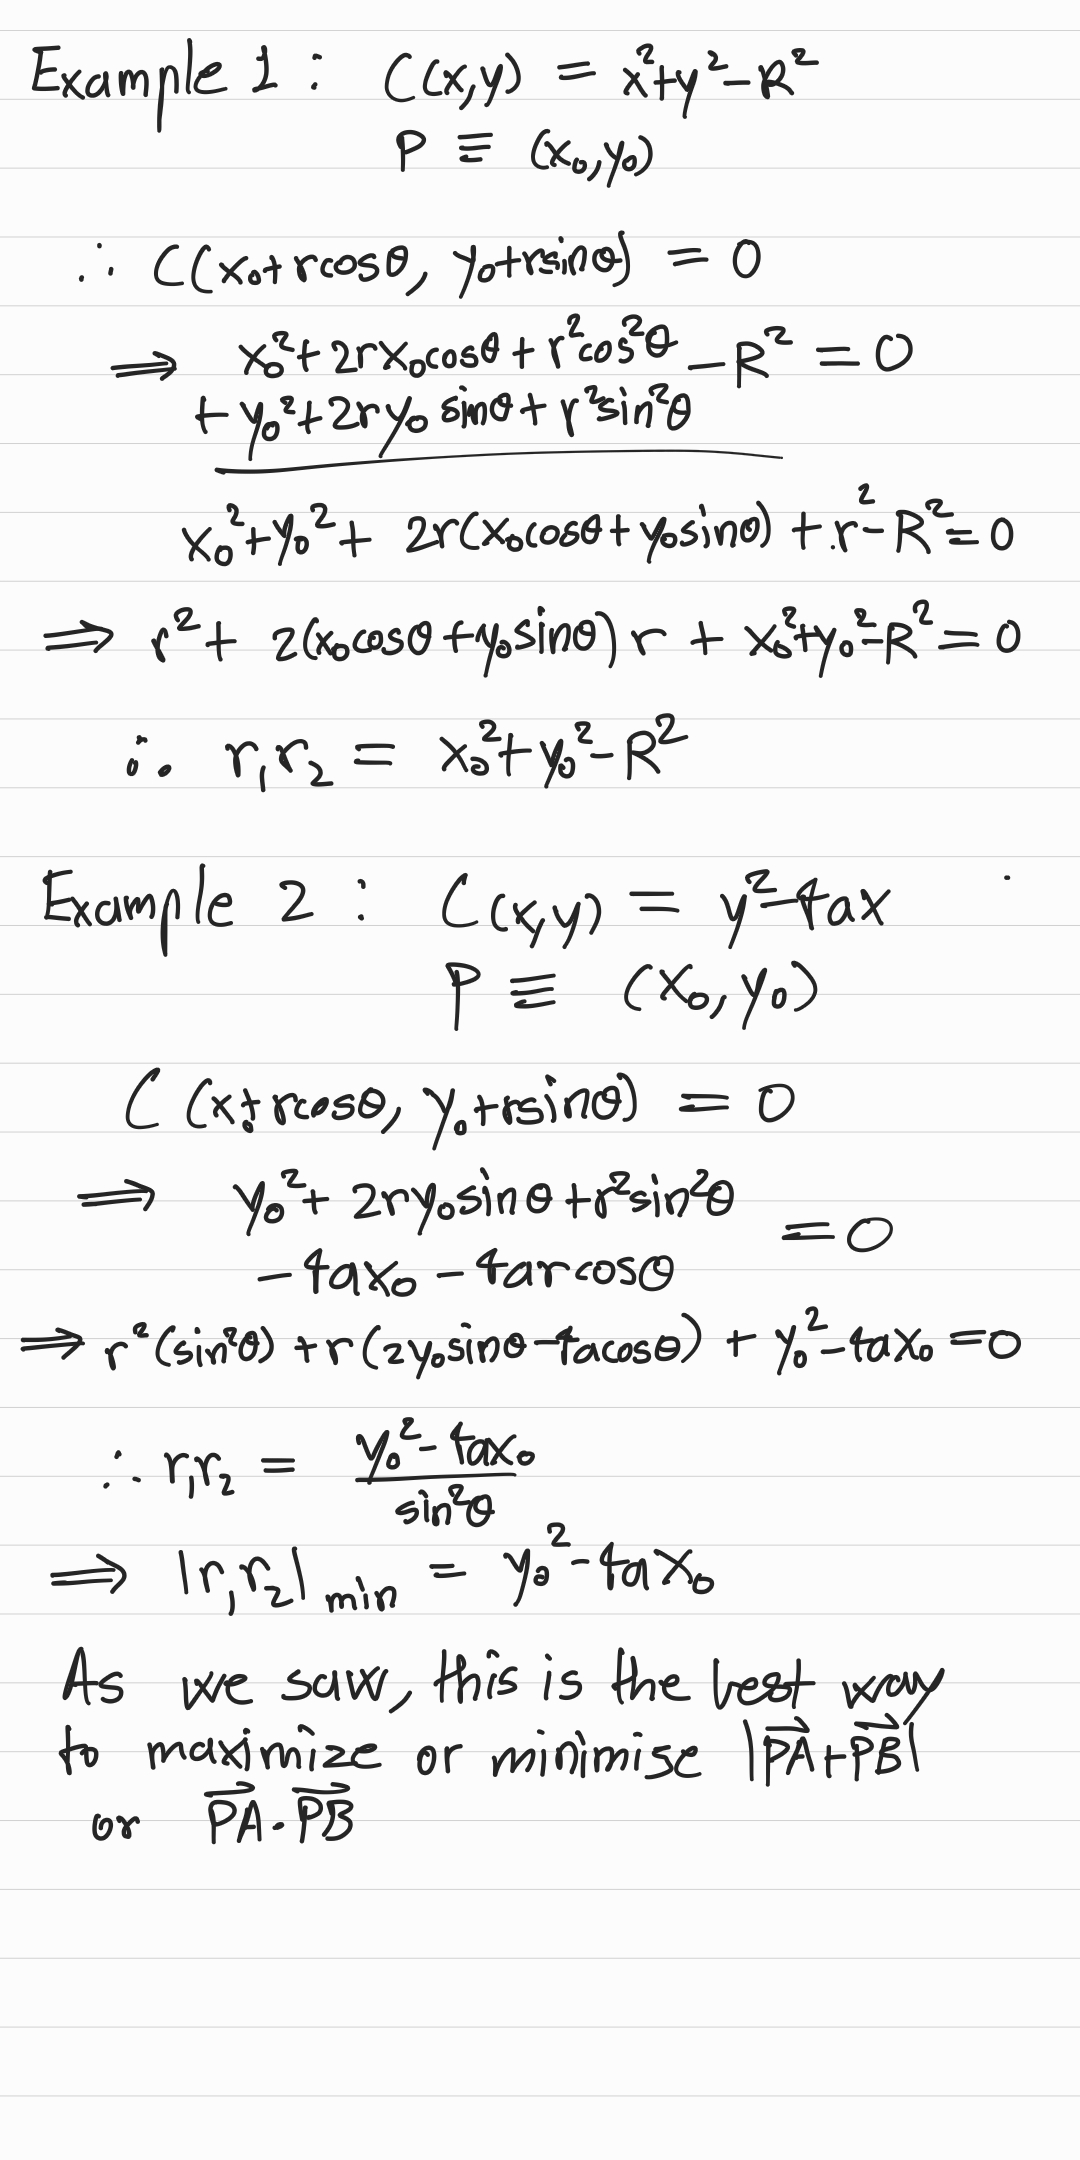 Example 1 : C(x,y) = x²+y²-R²
P ≡ (x₀,y₀)
∴ C(x₀+rcosθ, y₀+rsinθ) = 0
⟹ x₀²+2rx₀cosθ+r²cos²θ -R² = 0
+ y₀²+2ry₀ sinθ+ r²sin²θ
x₀²+y₀²+ 2r(x₀cosθ+y₀sinθ) + r²-R²=0
⟹ r²+ 2(x₀cosθ+y₀sinθ)r + x₀²+y₀²-R²=0
∴ r₁r₂ = x₀²+y₀²-R²
Example 2 : C(x,y) = y²-4ax
P ≡ (x₀,y₀)
C (x₀+rcosθ, y₀+rsinθ) = 0
⟹ y₀²+ 2ry₀sinθ+r²sin²θ
-4ax₀ -4arcosθ =0
⟹ r²(sin²θ) +r(2y₀sinθ-4acosθ) + y₀²-4ax₀=0
∴ r₁r₂ = (y₀²-4ax₀)/(sin²θ)
⟹ |r₁r₂|min = y₀²-4ax₀
As we saw, this is the best way
to maximize or minimise |P⃗A⃗+P⃗B⃗|
or P⃗A⃗·P⃗B⃗